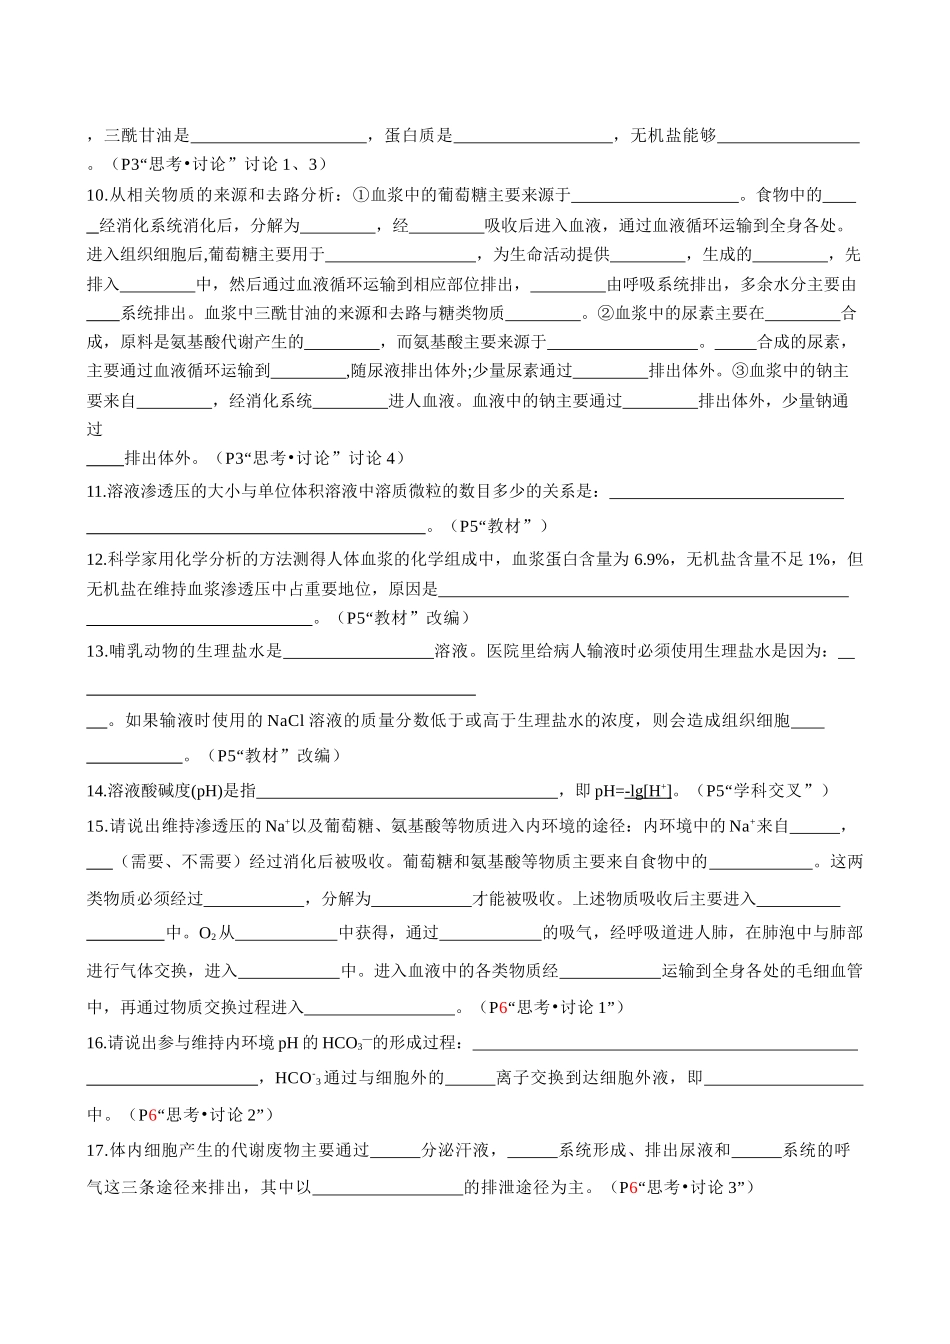 ，三酰甘油是____________________，蛋白质是__________________，无机盐能够________________
。（P3“思考•讨论”讨论 1、3）
10.从相关物质的来源和去路分析：①血浆中的葡萄糖主要来源于___________________。食物中的____
_经消化系统消化后，分解为_________，经_________吸收后进入血液，通过血液循环运输到全身各处。
进入组织细胞后,葡萄糖主要用于__________________，为生命活动提供_________，生成的_________，先
排入_________中，然后通过血液循环运输到相应部位排出，_________由呼吸系统排出，多余水分主要由
____系统排出。血浆中三酰甘油的来源和去路与糖类物质_________。②血浆中的尿素主要在_________合
成，原料是氨基酸代谢产生的_________，而氨基酸主要来源于__________________。_____合成的尿素，
主要通过血液循环运输到_________,随尿液排出体外;少量尿素通过_________排出体外。③血浆中的钠主
要来自_________，经消化系统_________进人血液。血液中的钠主要通过_________排出体外，少量钠通
过
____排出体外。（P3“思考•讨论”讨论 4）
11.溶液渗透压的大小与单位体积溶液中溶质微粒的数目多少的关系是：____________________________
________________________________________。（P5“教材”）
12.科学家用化学分析的方法测得人体血浆的化学组成中，血浆蛋白含量为 6.9%，无机盐含量不足 1%，但
无机盐在维持血浆渗透压中占重要地位，原因是_________________________________________________
___________________________。（P5“教材”改编）
13.哺乳动物的生理盐水是__________________溶液。医院里给病人输液时必须使用生理盐水是因为：__
______________________________________________
__。如果输液时使用的 NaCl 溶液的质量分数低于或高于生理盐水的浓度，则会造成组织细胞____
___________。（P5“教材”改编）
14.溶液酸碱度(pH)是指____________________________________，即 pH=-lg[H⁺]。（P5“学科交叉”）
15.请说出维持渗透压的 Na⁺以及葡萄糖、氨基酸等物质进入内环境的途径：内环境中的 Na⁺来自______，
___（需要、不需要）经过消化后被吸收。葡萄糖和氨基酸等物质主要来自食物中的____________。这两
类物质必须经过____________，分解为____________才能被吸收。上述物质吸收后主要进入__________
_________中。O₂从____________中获得，通过____________的吸气，经呼吸道进人肺，在肺泡中与肺部
进行气体交换，进入____________中。进入血液中的各类物质经____________运输到全身各处的毛细血管
中，再通过物质交换过程进入__________________。（P6“思考•讨论 1”）
16.请说出参与维持内环境 pH 的 HCO₃⁻的形成过程：______________________________________________
____________________，HCO⁻₃通过与细胞外的______离子交换到达细胞外液，即___________________
中。（P6“思考•讨论 2”）
17.体内细胞产生的代谢废物主要通过______分泌汗液，______系统形成、排出尿液和______系统的呼
气这三条途径来排出，其中以__________________的排泄途径为主。（P6“思考•讨论 3”）